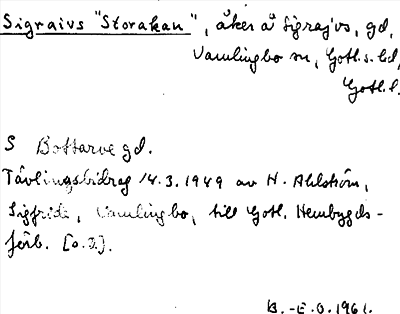 Sigraivs "Storakan", åker å Sigrajvs, gd,
Vamlingbo sn, Gotl. s. hd,
Gotl. l.
S Bottarve gd.
Tävlingsbidrag 14.3.1949 av H. Ahlström,
Sigfride, Vamlingbo, till Gotl. Hembygds-
förb. [o.I].
B.-E.O. 1961.